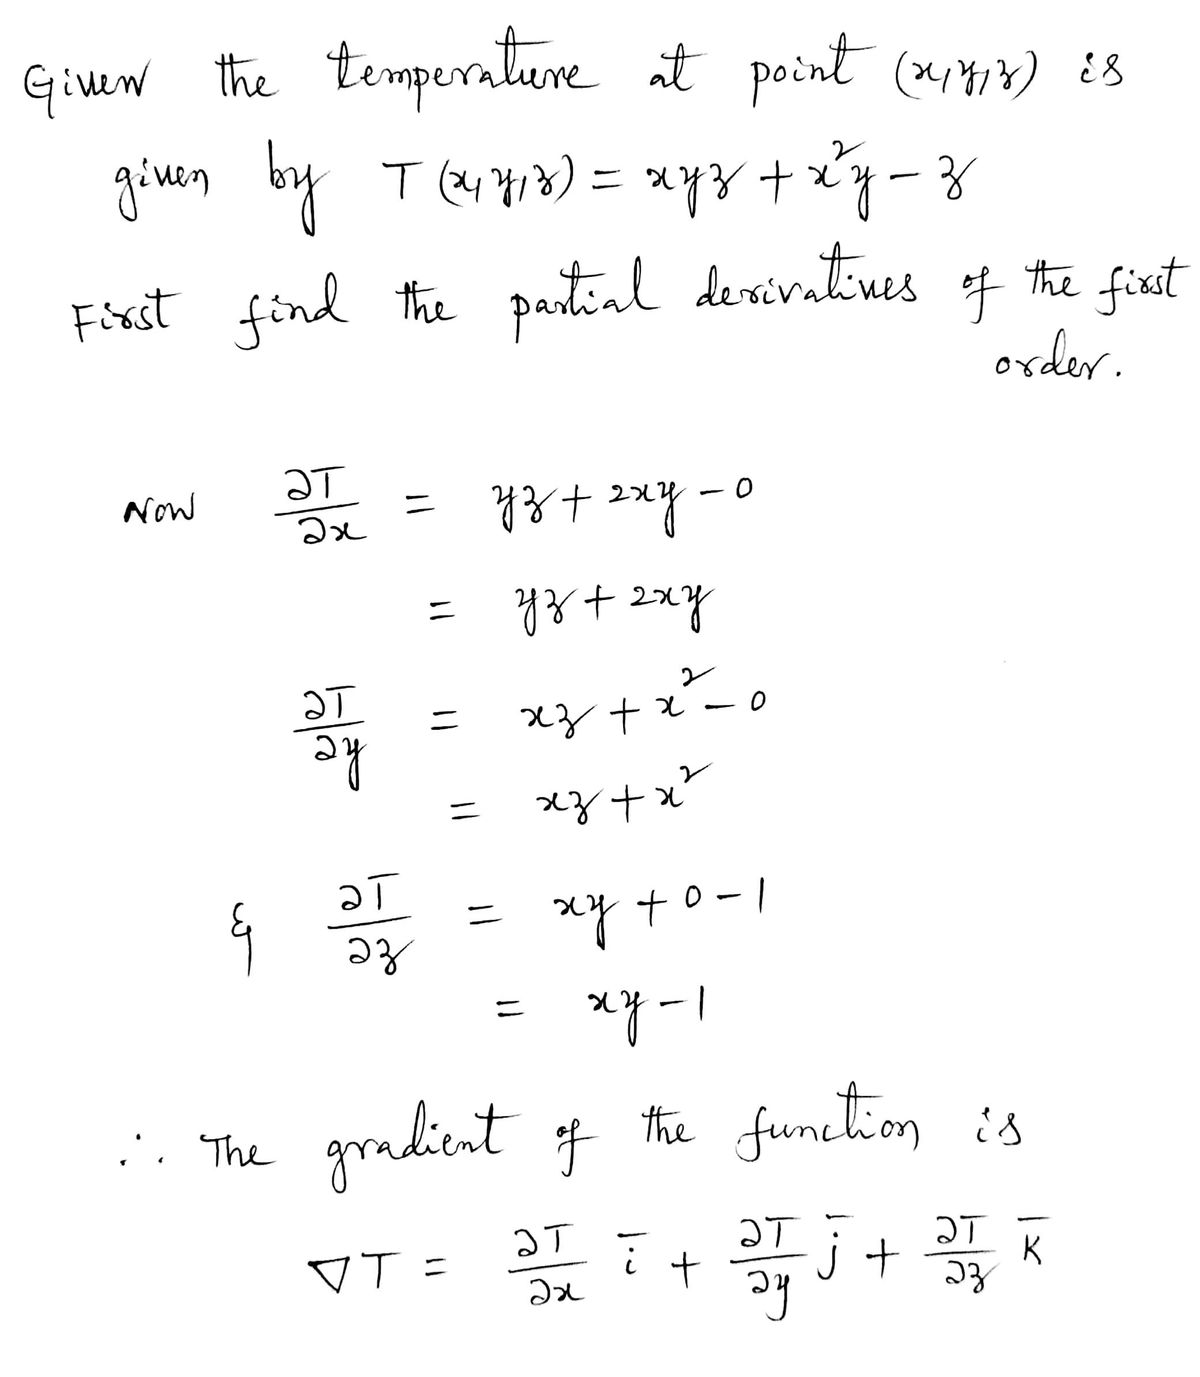 Given the temperature at point (x,y,z) is
given by T(x,y,z) = xyz + x²y - z
First find the partial derivatives of the first
order.
Now ∂T/∂x = yz + 2xy - 0
= yz + 2xy
∂T/∂y = xz + x² - 0
= xz + x²
& ∂T/∂z = xy + 0 - 1
= xy - 1
∴ The gradient of the function is
∇T = ∂T/∂x i̅ + ∂T/∂y j̅ + ∂T/∂z k̅